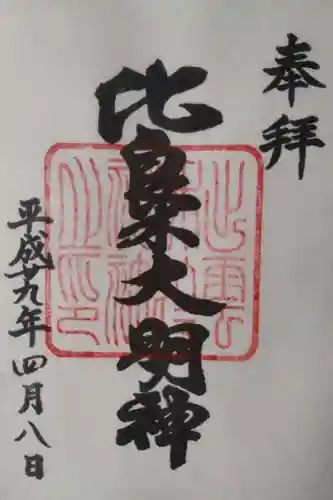 奉拝
比枲大明神
平成廿九年四月八日